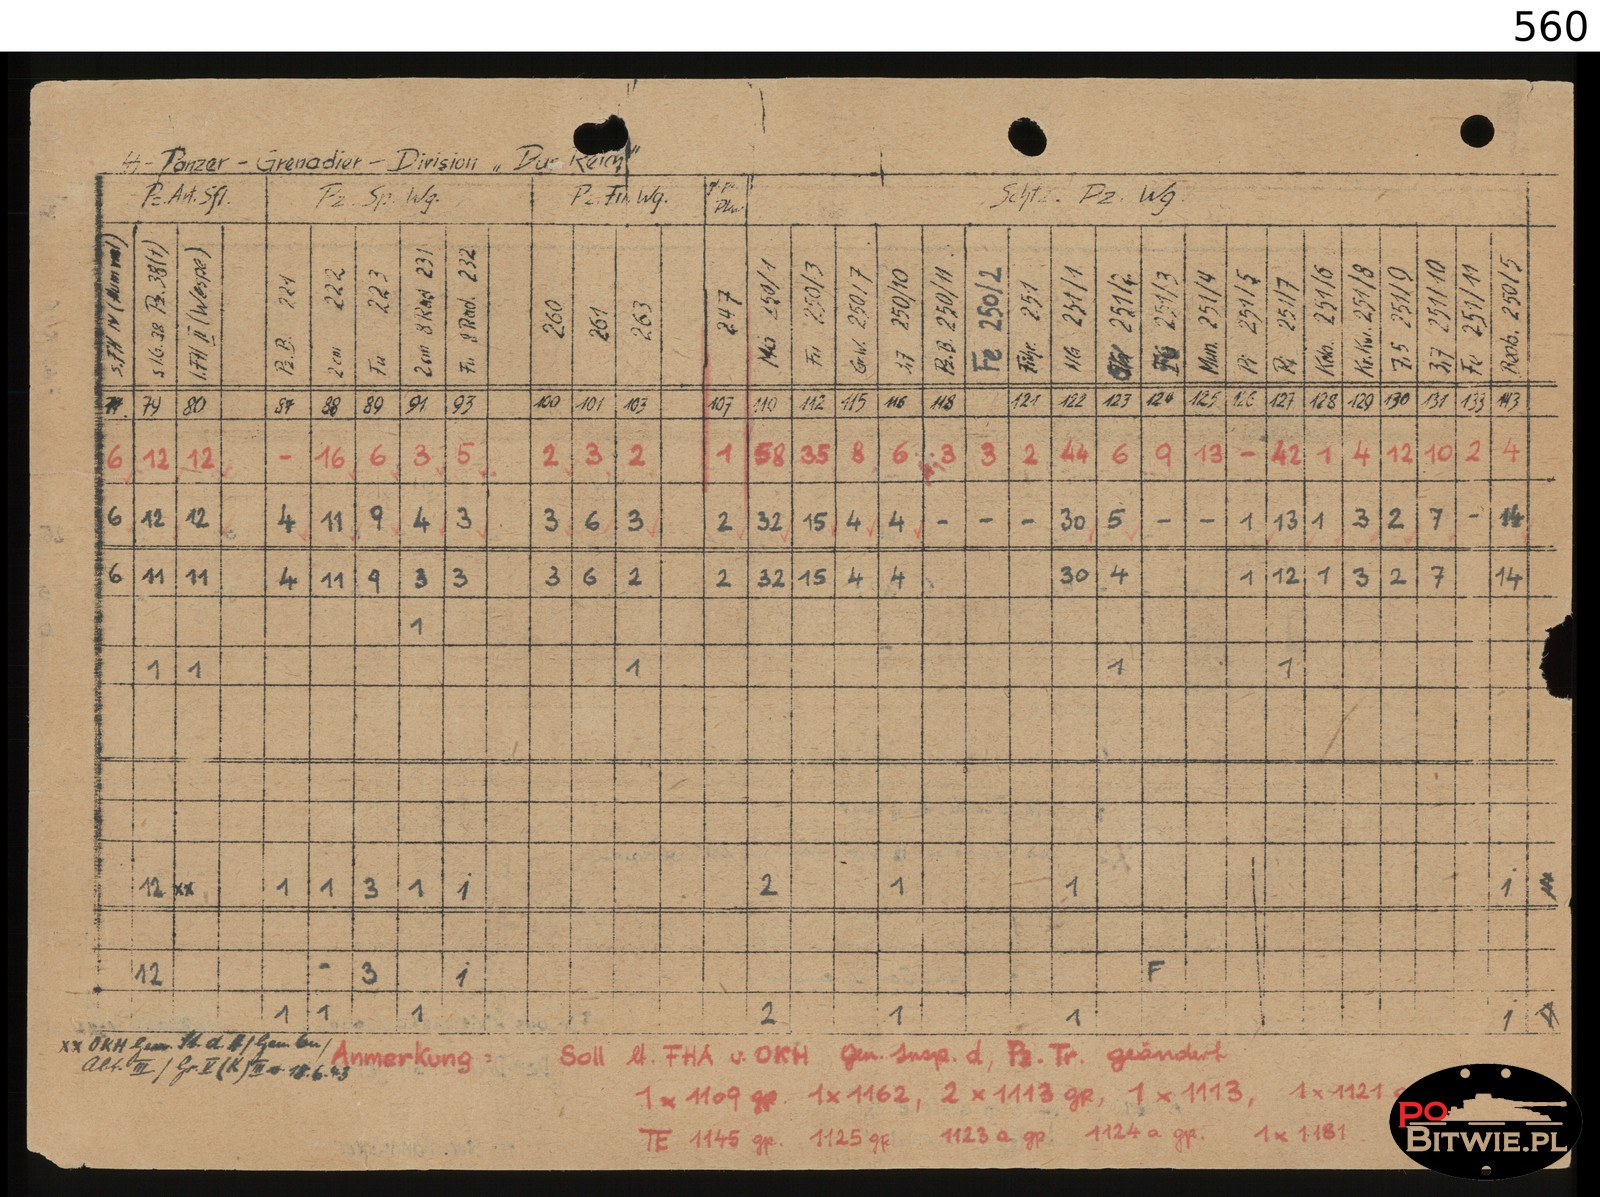 560
SS-Panzer-Grenadier-Division „Das Reich"
Pz.Art.Sfl. Pz. Sp. Wg. Pz. Fu. Wg. Schtz. Pz. Wg.
s.FH IV (Hummel) s.I.G.38 Pz.38(t) l.FH II (Wespe) Pz.B. 221 2cm 222 Fu 223 2cm 8 Rad 231 Fu 8 Rad. 232 260 261 263 247 250/1 Fu 250/3 Grw. 250/7 3,7 250/10 Pz.B. 250/11 Fe 250/2 251 MG 251/1 251/2 251/3 Mun. 251/4 Pi 251/5 Pi 251/7 251/6 Kr.Kw. 251/8 7,5 251/9 3,7 251/10 Fe 251/11 Beob. 250/5
79 80 87 88 89 91 93 100 101 103 107 110 112 115 116 118 121 122 123 124 125 126 127 128 129 130 131 133 143
6 12 12 - 16 6 3 5 2 3 2 1 58 35 8 6 3 3 2 44 6 9 13 - 42 1 4 12 10 2 4
6 12 12 4 11 9 4 3 3 6 3 2 32 15 4 4 - - - 30 5 - - 1 13 1 3 2 7 - 14
6 11 11 4 11 9 3 3 3 6 2 2 32 15 4 4 30 4 1 12 1 3 2 7 14
1
1 1 1 1 1
12 xx 1 1 3 1 1 2 1 1 1
12 - 3 1 F
1 1 1 2 1 1 1
xx OKH Gen. St. d. H/
Abt. III / Gr. V (K) 18.6.43
Anmerkung: Soll lt. FHA u. OKH Gen. Insp. d. Pz. Tr. geändert
1 x 1109 gp. 1x1162, 2 x 1113 gp, 1 x 1113, 1 x 1121
TE 1145 gp. 1125 gp 1123 a gp. 1124 a gp. 1 x 1181
PO
BITWIE.PL